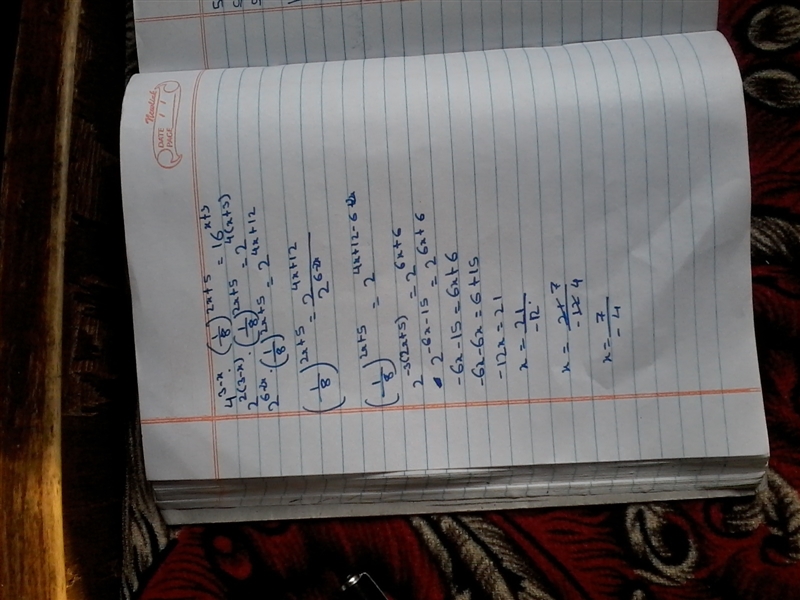 Neelgagan
DATE / /
PAGE
4^{3-x} · (1/8)^{2x+5} = 16^{x+3}
2^{2(3-x)} · (1/8)^{2x+5} = 2^{4(x+3)}
2^{6-2x} · (1/8)^{2x+5} = 2^{4x+12}
(1/8)^{2x+5} = 2^{4x+12} / 2^{6-2x}
(1/8)^{2x+5} = 2^{4x+12-6+2x}
2^{-3(2x+5)} = 2^{6x+6}
2^{-6x-15} = 2^{6x+6}
-6x-15 = 6x+6
-6x-6x = 6+15
-12x = 21
x = 21/-12
x = 21 7/-12 4
x = 7/-4